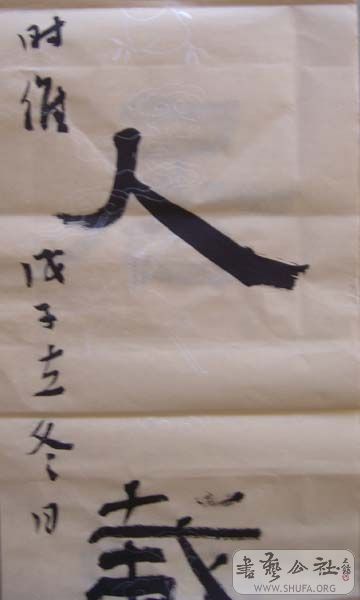 人
时维 戊子立冬日
書藝公社
WWW.SHUFA.ORG